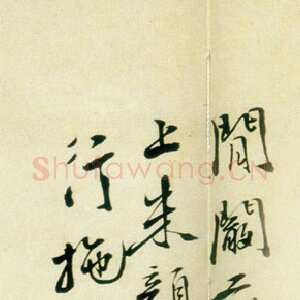 閒
上朱顏
行拖
Shufawang.CN